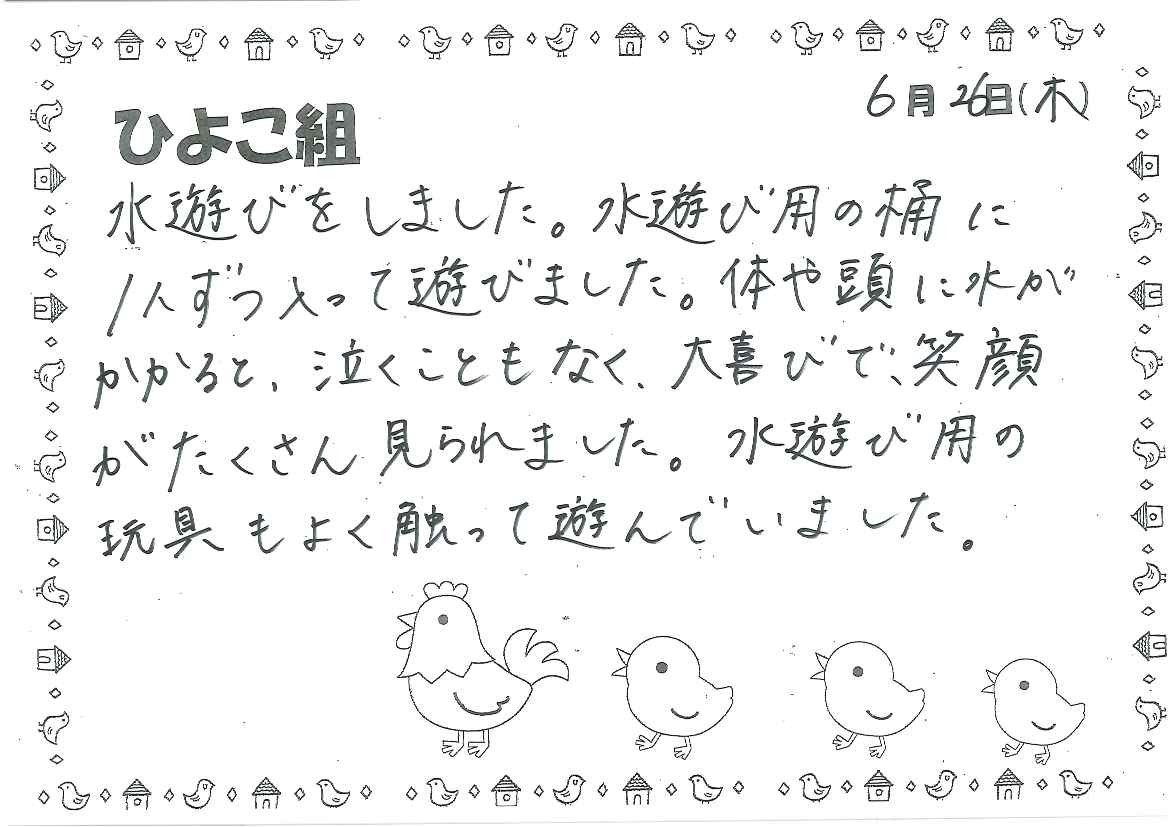 6月26日(木)
ひよこ組
水遊びをしました。水遊び用の桶に
1人ずつ入って遊びました。体や頭に水が
かかると、泣くこともなく、大喜びで、笑顔
がたくさん見られました。水遊び用の
玩具もよく触って遊んでいました。